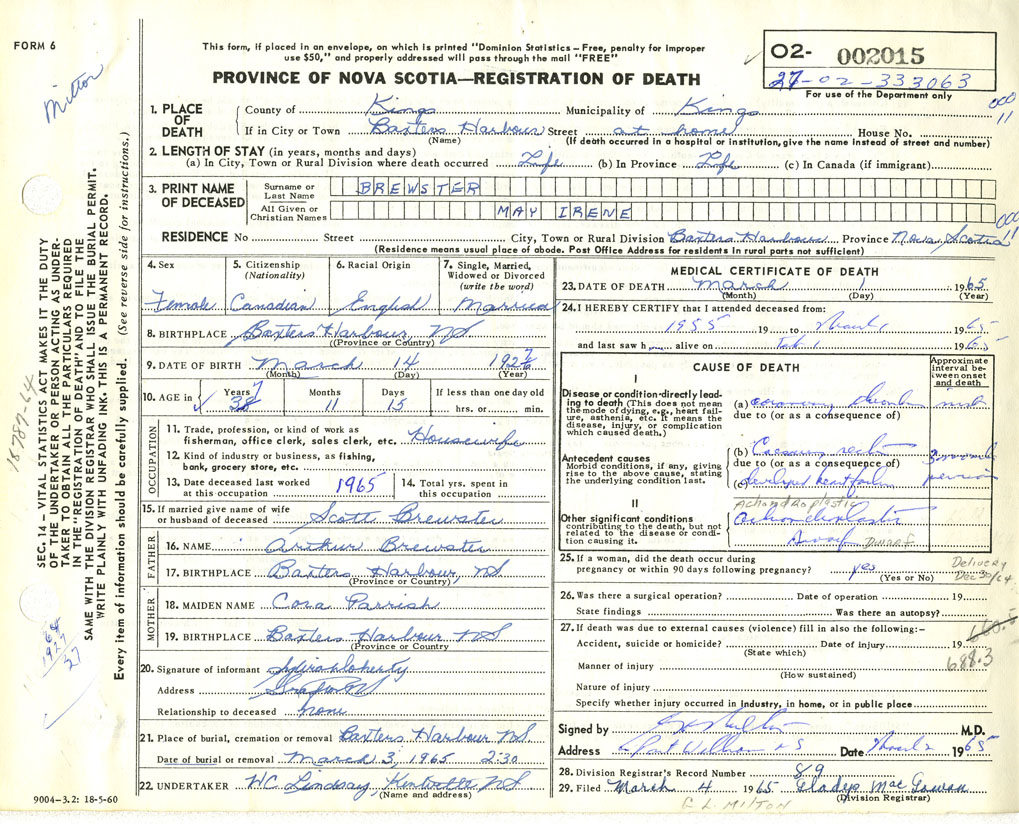 FORM 6
This form, if placed in an envelope, on which is printed "Dominion Statistics – Free, penalty for improper
use $50," and properly addressed will pass through the mail "FREE"
PROVINCE OF NOVA SCOTIA—REGISTRATION OF DEATH
O2- 002015
27-02-333063
For use of the Department only
Milton
000
11
1. PLACE OF DEATH
County of Kings Municipality of Kings
If in City or Town Baxters Harbour Street at home House No.
(Name) (If death occurred in a hospital or institution, give the name instead of street and number)
2. LENGTH OF STAY (in years, months and days)
(a) In City, Town or Rural Division where death occurred Life (b) In Province Life (c) In Canada (if immigrant)
3. PRINT NAME OF DECEASED
Surname or Last Name BREWSTER
All Given or Christian Names MAY IRENE
000
11
RESIDENCE No Street City, Town or Rural Division Baxters Harbour Province Nova Scotia
(Residence means usual place of abode. Post Office Address for residents in rural parts not sufficient)
4. Sex Female
5. Citizenship (Nationality) Canadian
6. Racial Origin English
7. Single, Married, Widowed or Divorced (write the word) Married
8. BIRTHPLACE Baxters Harbour, NS
(Province or Country)
9. DATE OF BIRTH March 14 192
(Month) (Day) (Year)
10. AGE in Years 38 7 Months 11 Days 15 If less than one day old hrs. or min.
OCCUPATION
11. Trade, profession, or kind of work as fisherman, office clerk, sales clerk, etc. Housewife
12. Kind of industry or business, as fishing, bank, grocery store, etc.
13. Date deceased last worked at this occupation 1965
14. Total yrs. spent in this occupation
15. If married give name of wife or husband of deceased Scott Brewster
FATHER
16. NAME Arthur Brewster
17. BIRTHPLACE Baxters Harbour, NS
(Province or Country)
MOTHER
18. MAIDEN NAME Cora Parrish
19. BIRTHPLACE Baxters Harbour NS
(Province or Country
20. Signature of informant
Address Grafton NS
Relationship to deceased none
21. Place of burial, cremation or removal Baxters Harbour NS
Date of burial or removal March 3, 1965 2:30
22. UNDERTAKER WC Lindsay, Kentville NS
(Name and address)
MEDICAL CERTIFICATE OF DEATH
23. DATE OF DEATH March 1 1965
(Month) (Day) (Year)
24. I HEREBY CERTIFY that I attended deceased from:
1955 19 to March 1 1965
and last saw h alive on 1965
CAUSE OF DEATH
Approximate interval between onset and death
I
Disease or condition directly leading to death (This does not mean the mode of dying, e.g., heart failure, asthenia, etc. It means the disease, injury, or complication which caused death.)
(a) coronary
due to (or as a consequence of)
Antecedent causes
Morbid conditions, if any, giving rise to the above cause, stating the underlying condition last.
(b) Caesarean section
due to (or as a consequence of)
(c) developed heart failure
II
Other significant conditions contributing to the death, but not related to the disease or condition causing it.
Achondroplastic
Achondroplastic
Dwarf DWARF
25. If a woman, did the death occur during pregnancy or within 90 days following pregnancy? yes
(Yes or No)
Delivery
Dec 30/64
26. Was there a surgical operation? Date of operation 19
State findings Was there an autopsy?
27. If death was due to external causes (violence) fill in also the following:–
Accident, suicide or homicide? Date of injury 19
(State which)
688.3
Manner of injury
(How sustained)
Nature of injury
Specify whether injury occurred in industry, in home, or in public place
Signed by M.D.
Address Port Williams NS Date March 2 1965
28. Division Registrar's Record Number 89
29. Filed March 4 1965 Gladys MacGowan
(Division Registrar)
G L MILTON
SEC. 14—VITAL STATISTICS ACT MAKES IT THE DUTY
OF THE UNDERTAKER OR PERSON ACTING AS UNDER-
TAKER TO OBTAIN ALL THE PARTICULARS REQUIRED
IN THE "REGISTRATION OF DEATH" AND TO FILE THE
SAME WITH THE DIVISION REGISTRAR WHO SHALL ISSUE THE BURIAL PERMIT.
WRITE PLAINLY WITH UNFADING INK. THIS IS A PERMANENT RECORD.
Every item of information should be carefully supplied. (See reverse side for instructions.)
18789-64
64
1927
27
9004–3.2: 18-5-60